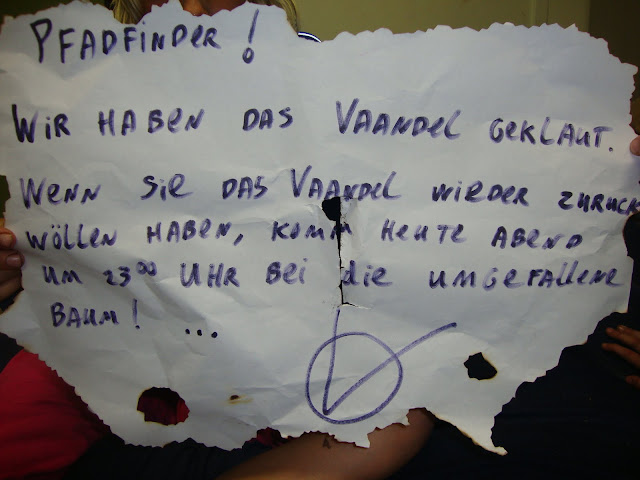 PFADFINDER!
WIR HABEN DAS VAANDEL GEKLAUT.
WENN SIE DAS VAANDEL WIEDER ZURUCK
WÖLLEN HABEN, KOMM HEUTE ABEND
UM 23⁰⁰ UHR BEI die UMGEFALLENE
BAUM! ...